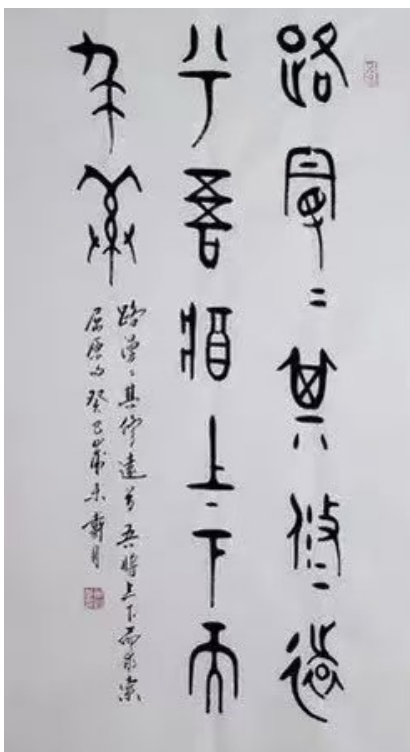 路曼〻其修〻遠
兮吾將上下而
求索
路曼〻其修遠兮吾將上下而求索
屈原句癸巳歲末戴月